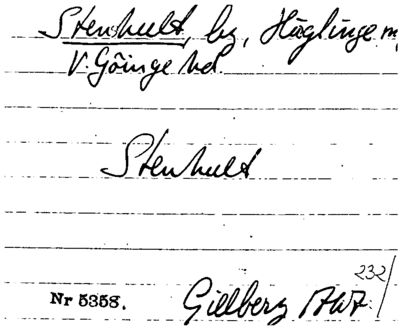 Stenhult, by, Häglinge m
V. Göinge hd.
Stenhult
232/
Nr 5358. Gillberg